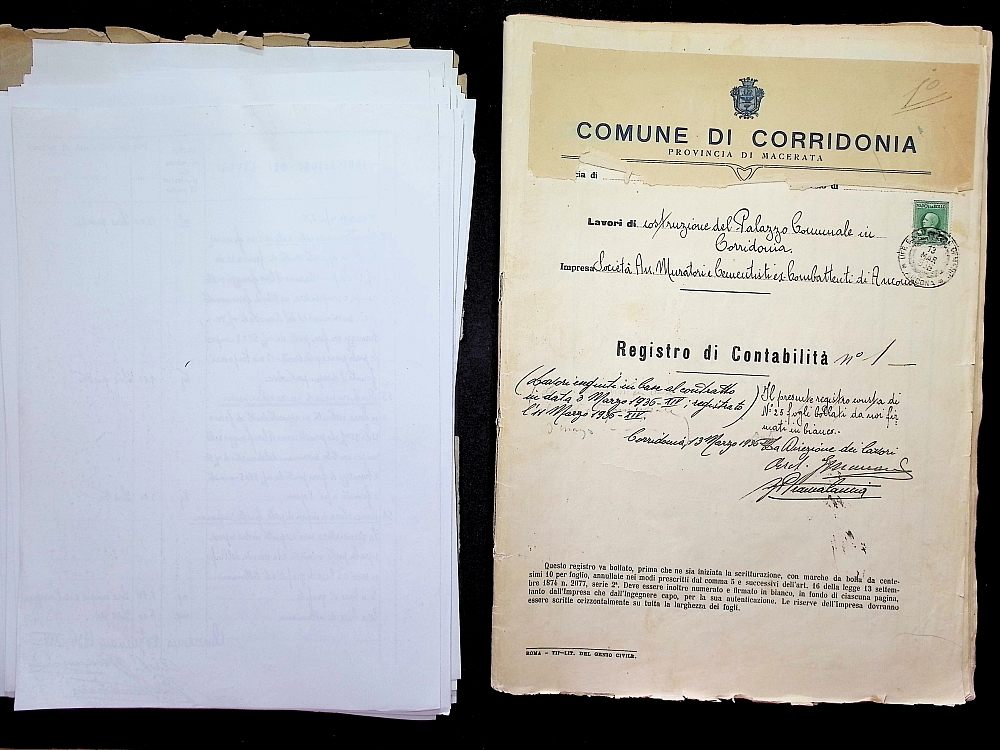 1º
COMUNE DI CORRIDONIA
PROVINCIA DI MACERATA
cia di
di
MARCA DA BOLLO
Lavori di costruzione del Palazzo Comunale in
Corridonia.
Impresa Società An. Muratori e Cementisti ex Combattenti di Ancona
13
MAR
Registro di Contabilità nº 1
(Lavori eseguiti in base al contratto
in data 3 Marzo 1936-XIV; registrato
l'11 Marzo 1936-XIV)
Il presente registro consta di
Nº 25 fogli bollati da noi fir
mati in bianco.
Corridonia, 13 Marzo 1936
La Direzione dei Lavori
Arch.
Questo registro va bollato, prima che ne sia iniziata la scritturazione, con marche da bollo da cente-
simi 10 per foglio, annullate nei modi prescritti dal comma 5 e successivi dell'art. 16 della legge 13 settem-
bre 1874 n. 2077, serie 2ª. Deve essere inoltre numerato e firmato in bianco, in fondo di ciascuna pagina,
tanto dall'Impresa che dall'Ingegnere capo, per la sua autenticazione. Le riserve dell'Impresa dovranno
essere scritte orizontalmente su tutta la larghezza dei fogli.
ROMA - TIP-LIT. DEL GENIO CIVILE.